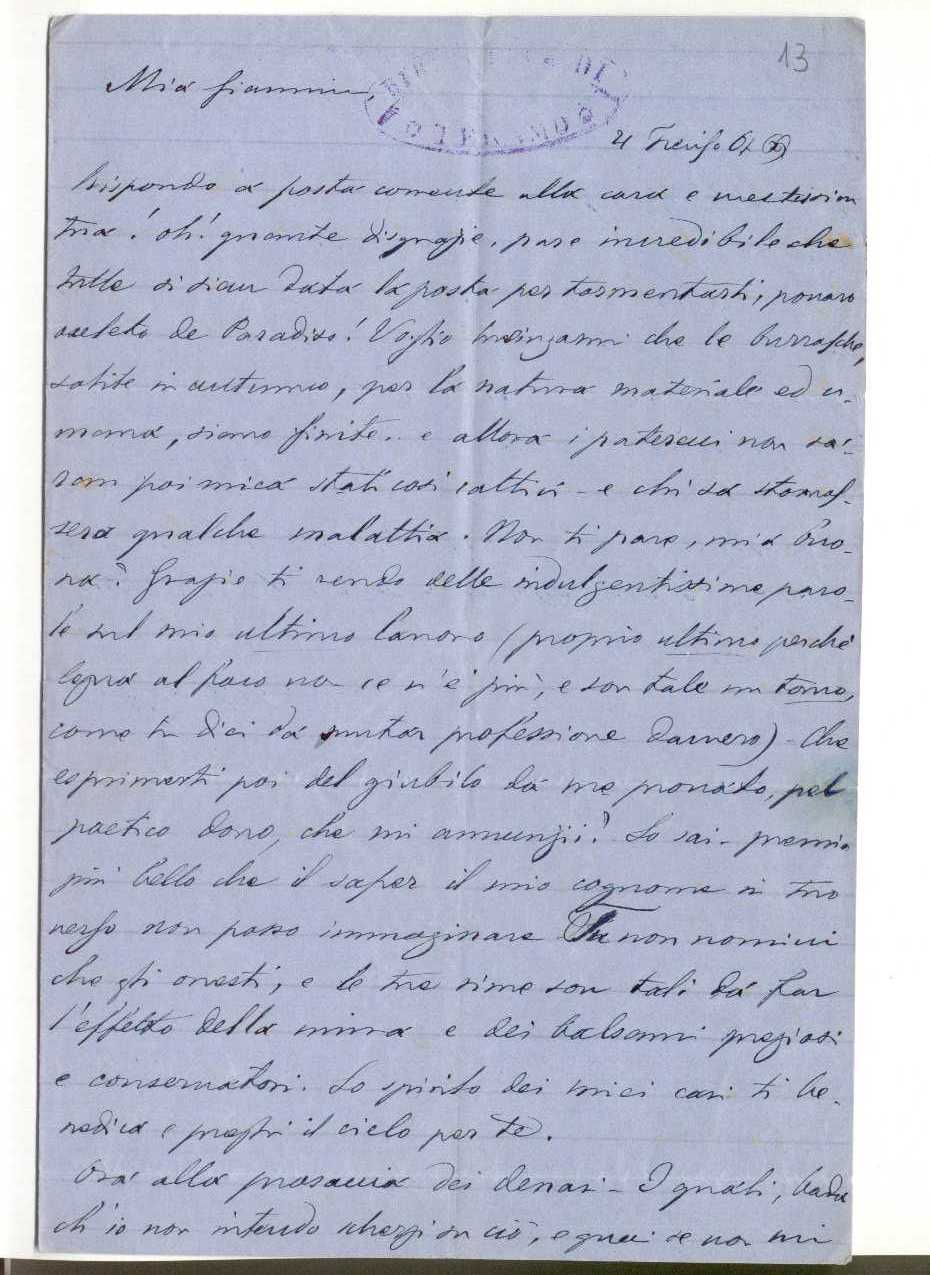 13
Mia Giannina,
Rispondo a posta corrente alla cara e mestissima
tua! oh! quante disgrazie, pare incredibile che
tutte si sieno data la posta per tormentarti, povaro
oseleto de Paradiso! Voglio lusingarmi che le burrasche,
solite in autunno, per la natura materiale ed u-
mana, siano finite.. e allora i patereci non sa-
ran poi mica stati così cattivi - e chi sa stornas-
sero qualche malattia. Non ti pare, mia buo-
na? Grazie ti rendo delle indulgentissime paro-
le sul mio ultimo lavoro (proprio ultimo perchè
legna al foco non ce n'è più, e son tale un tomo,
come tu dici da mutar professione davvero) - Che
esprimerti poi del giubilo da me provato, pel
poetico dono, che mi annunzii? Lo sai - premio
più bello che il saper il mio cognome in tuo
verso non posso immaginare Tu non nomini
che gli onesti, e le tue rime son tali da far
l'effetto della mirra e dei balsami preziosi
e conservatori. Lo spirito dei miei cari ti be-
nedica e preghi il cielo per te.
Ora alla prosaccia dei denari - I quali, bada
ch'io non intendo scherzi su ciò, e guai se non mi